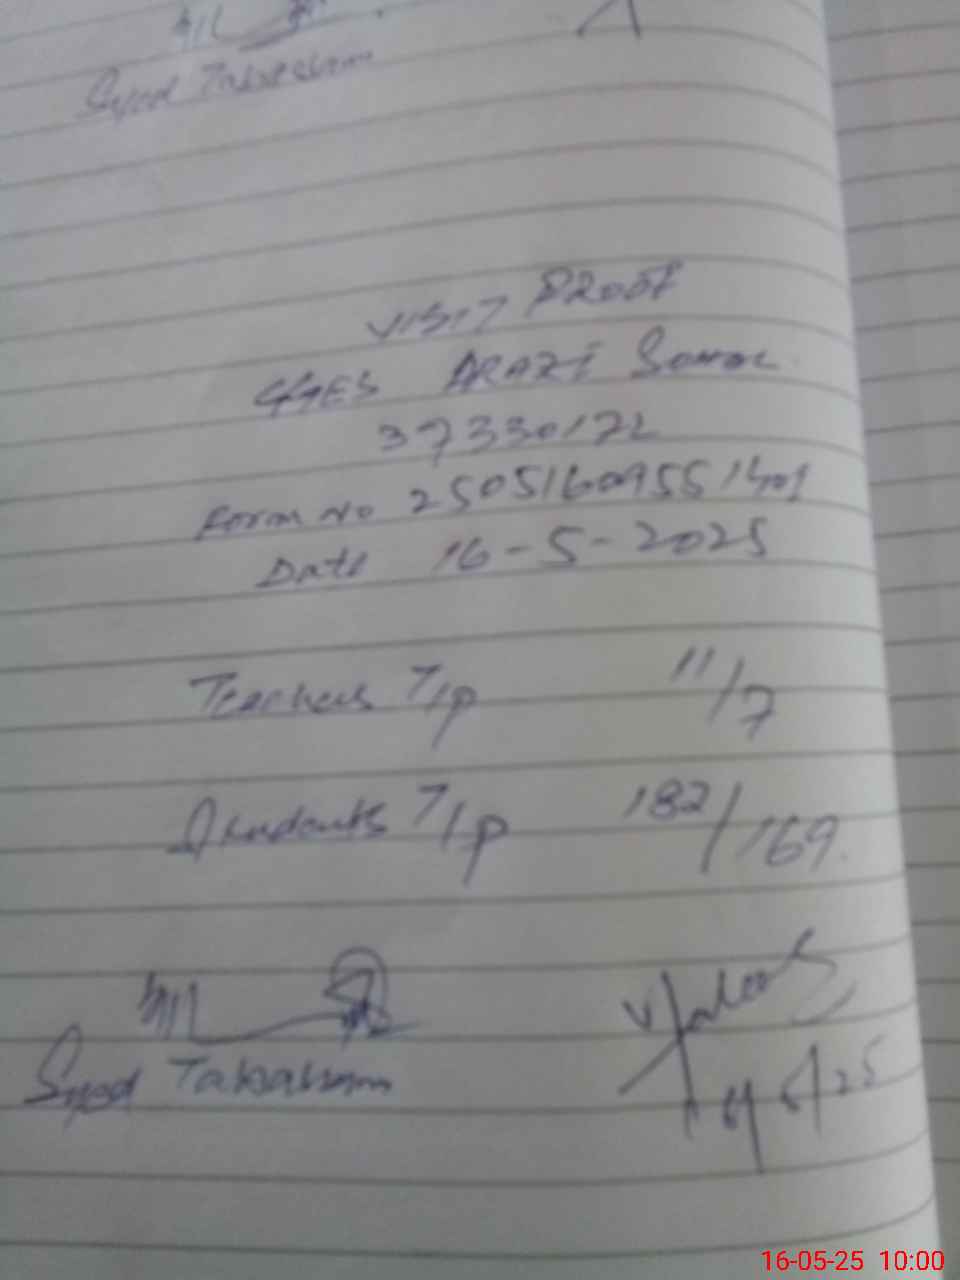 Syed Tabassum
VISIT PROOF
GGES ARAZI Sohal
37330172
Form No 25051609551401
Date 16-5-2025
Teachers T/P 11/7
Students T/P 182/169
Syed Tabassum
16-05-25 10:00